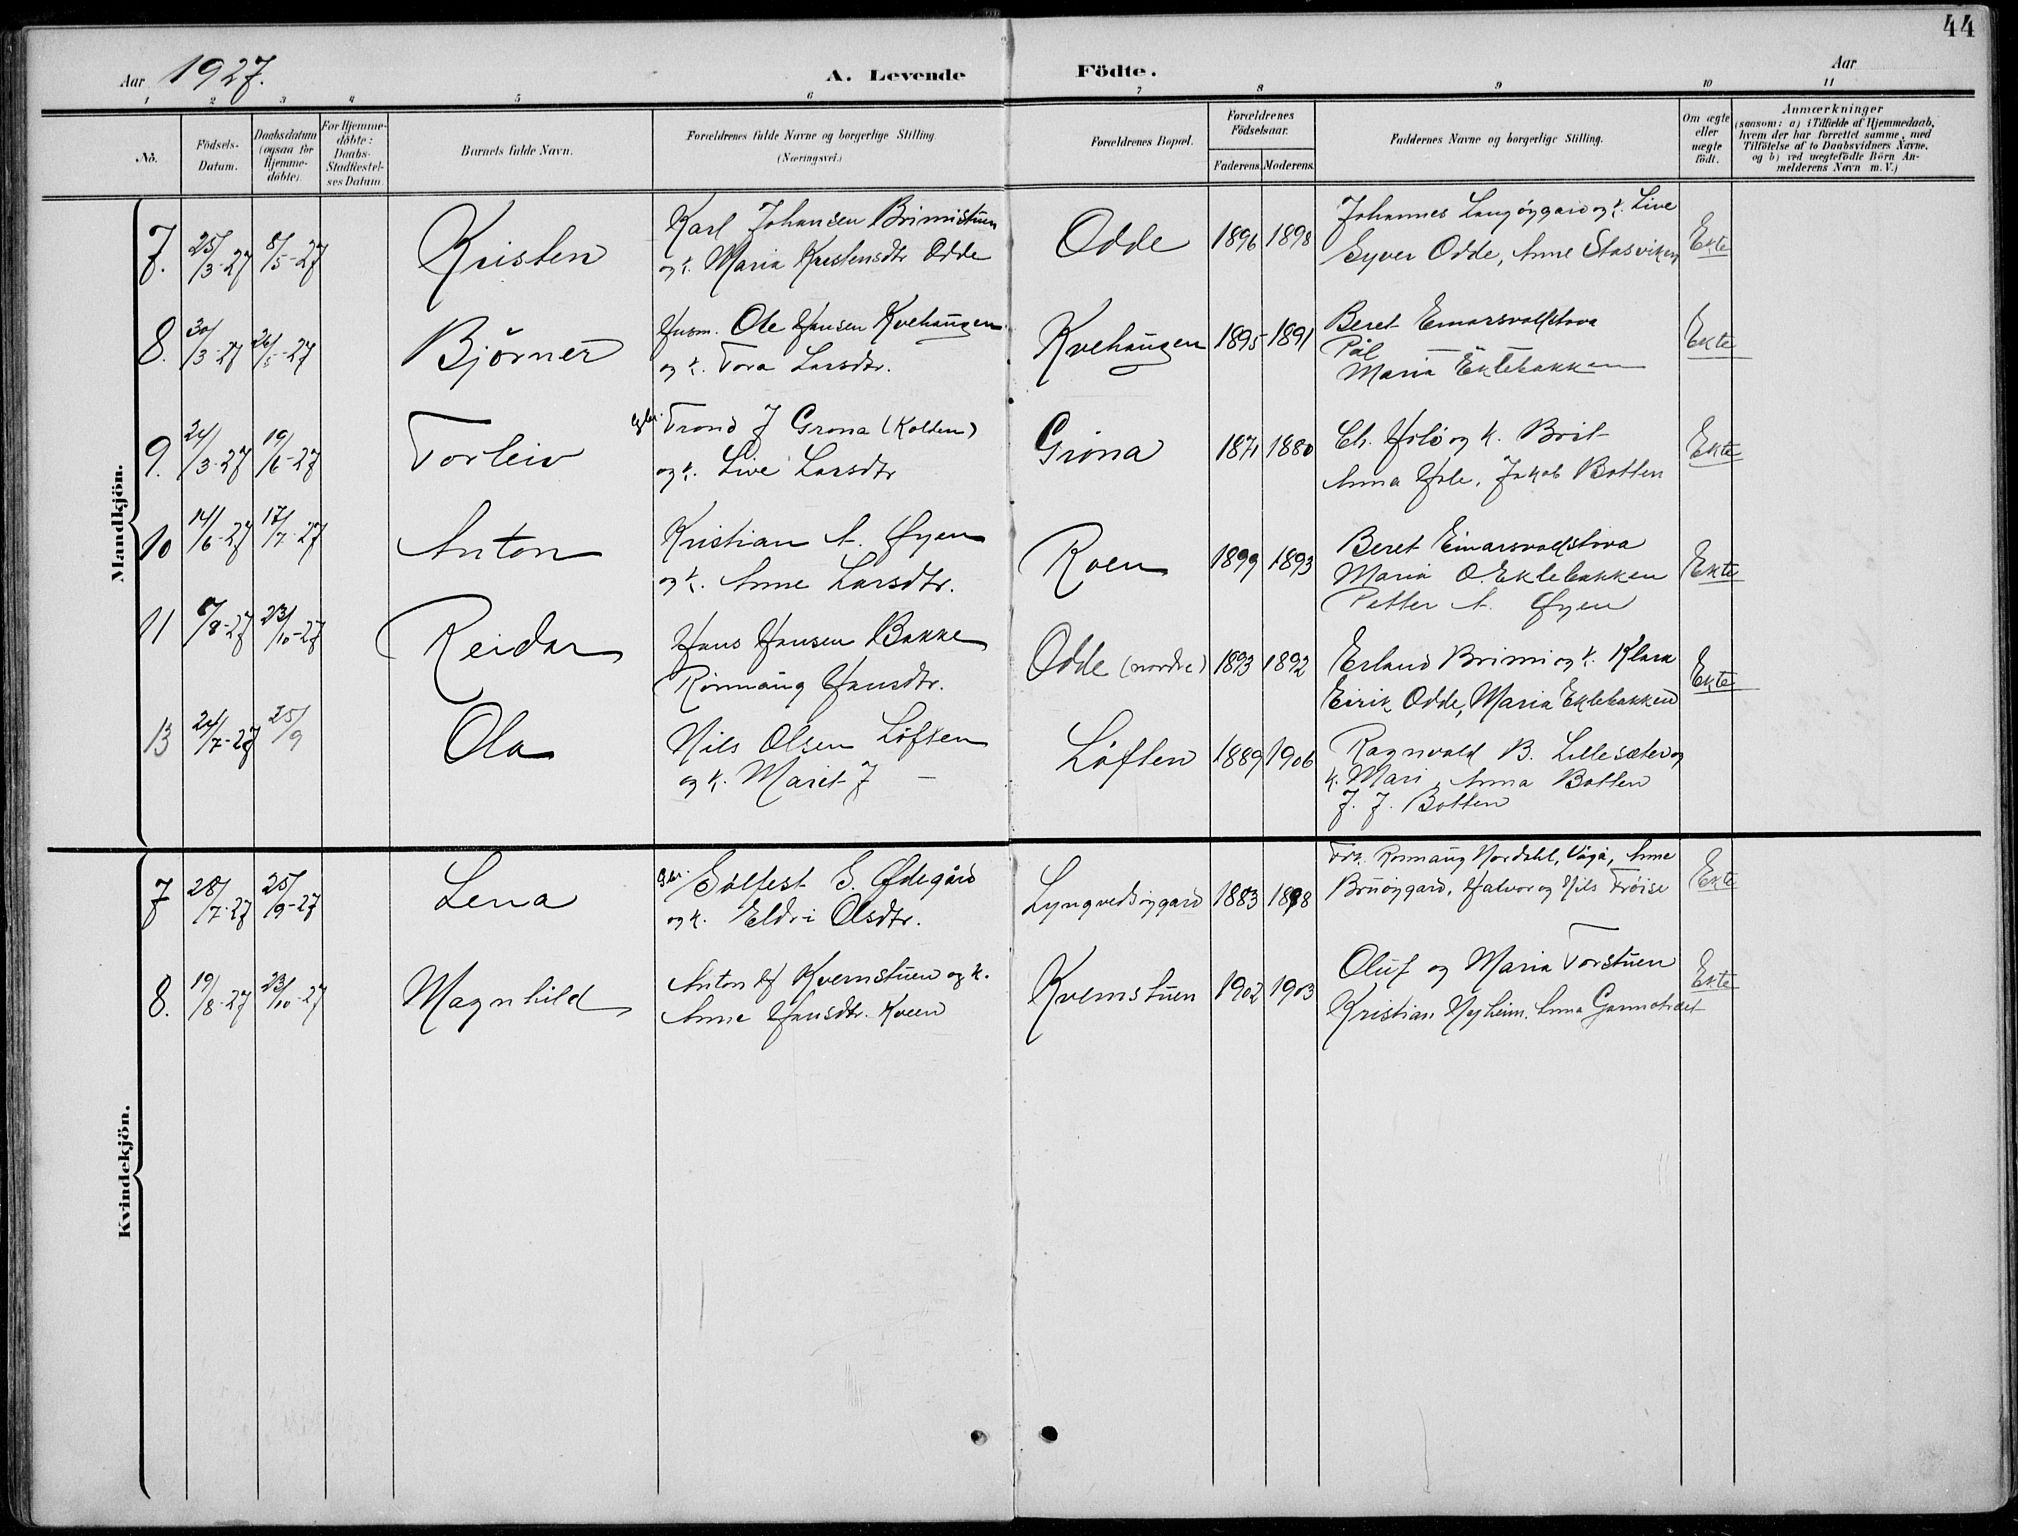 44
Aar 1927. A. Levende Födte. Aar
1 2 3 4 5 6 7 8 9 10 11
No.
Födsels-Datum.
Daabsdatum (ogsaa for Hjemme-döbte).
For Hjemme-döbte: Daabs-Stadfæstel-ses Datum.
Barnets fulde Navn.
Forældrenes fulde Navne og borgerlige Stilling.
(Næringsvei.)
Forældrenes Bopæl.
Forældrenes Födselsaar.
Faderens. Moderens.
Faddernes Navne og borgerlige Stilling.
Om ægte eller uægte födt.
Anmærkninger
(saasom: a) i Tilfælde af Hjemmedaab,
hvem der har forrettet samme, med
Tilföielse af to Daabsvidners Navne,
og b) ved uægtefödte Börn An-
melderens Navn m. V.)
Mandkjön.
7. 25/3-27 8/5-27 Kristen
Karl Johansen Brimistuen
og k. Maria Kristensdtr Odde
Odde 1896 1898
Johannes Langøygard og k. Live
Syver Odde, Anne Stasviken
Ekte
8. 30/3-27 26/5-27 Bjørner
Husm. Ole Hansen Kvehaugen
og k. Tora Larsdtr.
Kvehaugen 1895 1891
Beret Einarsvollstova
Pål —
Maria Eklebakken
Ekte
9. 24/3-27 19/6-27 Torleiv
Gbr. Trond J Grøna (Kolden)
og k. Live Larsdtr
Grøna 1871 1880
Ch. Hølø og k. Brit
Anna Hole, Jakob Botten
Ekte
10 14/6-27 17/7-27 Anton
Kristian A. Øyen
og k. Anne Larsdtr.
Roen 1899 1893
Beret Einarsvollstova
Maria O. Eklebakken
Petter A. Øyen
Ekte
11 8/8-27 23/10-27 Reidar
Hans Hansen Bakke
Rønnaug Hansdtr.
Odde (nordre) 1893 1892
Erland Brimi og k. Klara
Eirik Odde, Maria Eklebakken
Ekte
13 24/7-27 25/9 Ola
Nils Olsen Løften
og k. Marit J —
Løften 1889 1906
Ragnvald B. Lillesæter og
k. Mari, Anna Botten
J. J. Botten
Kvindekjön.
7 28/7-27 25/9-27 Lena
Gbr. Eolfest S. Ødegård
og k. Eldri Olsdtr.
Lyngvedsøygard 1883 1888
Frk. Rønnaug Nordahl, Vågå, Anne
Bruøygard, Halvor og Nils Frøise
Ekte
8. 19/8-27 23/10-27 Magnhild
Anton H Kvernstuen og k.
Anne Hansdtr. Kveen
Kvernstuen 1902 1903
Oluf og Maria Torstuen
Kristian Nyheim. Anna Garmotræet
Ekte